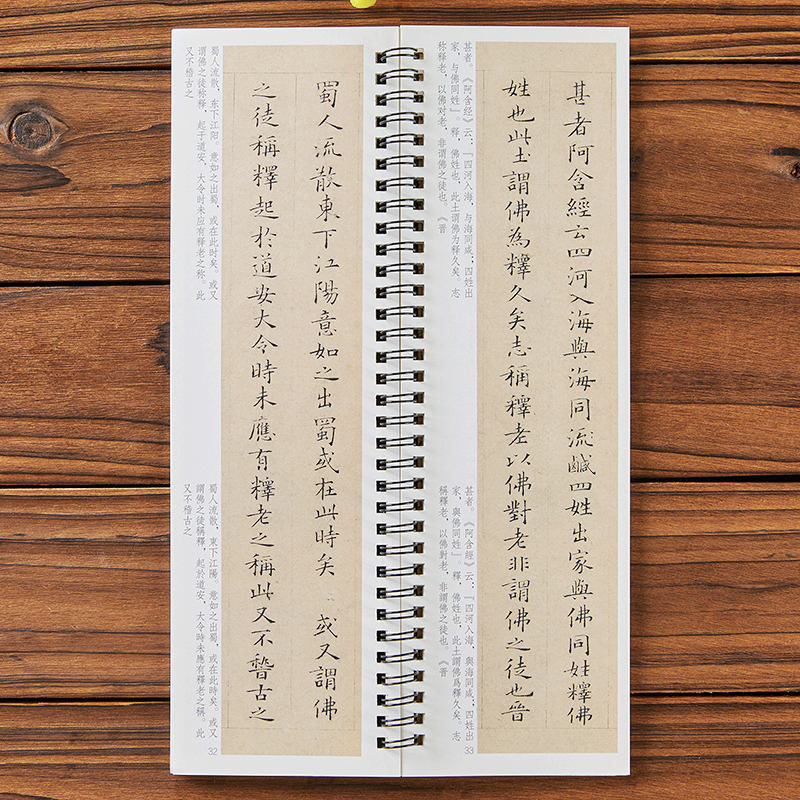 蜀人流散東下江陽意如之出蜀或在此時矣 或又謂佛
之徒稱釋起於道安大令時未應有釋老之稱此又不稽古之
蜀人流散，东下江阳。意如之出蜀，或在此时矣。或又
谓佛之徒称释，起于道安，大令时未应有释老之称。此
又不稽古之
蜀人流散，東下江陽。意如之出蜀，或在此時矣。或又
謂佛之徒稱釋，起於道安，大令時未應有釋老之稱。此
又不稽古之
32
甚者阿含經云四河入海與海同流鹹四姓出家與佛同姓釋佛
姓也此土謂佛為釋久矣志稱釋老以佛對老非謂佛之徒也晉
甚者。《阿含经》云：「四河入海，与海同咸；四姓出
家，与佛同姓」。释，佛姓也，此土谓佛为释久矣。志
称释老，以佛对老，非谓佛之徒也。《晋
甚者。《阿含經》云：「四河入海，與海同咸；四姓出
家，與佛同姓」。釋，佛姓也，此土謂佛爲釋久矣。志
稱釋老，以佛對老，非謂佛之徒也。《晋
33